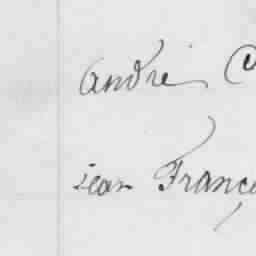 André
jean Franço